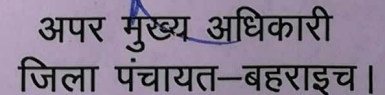 अपर मुख्य अधिकारी
जिला पंचायत–बहराइच।